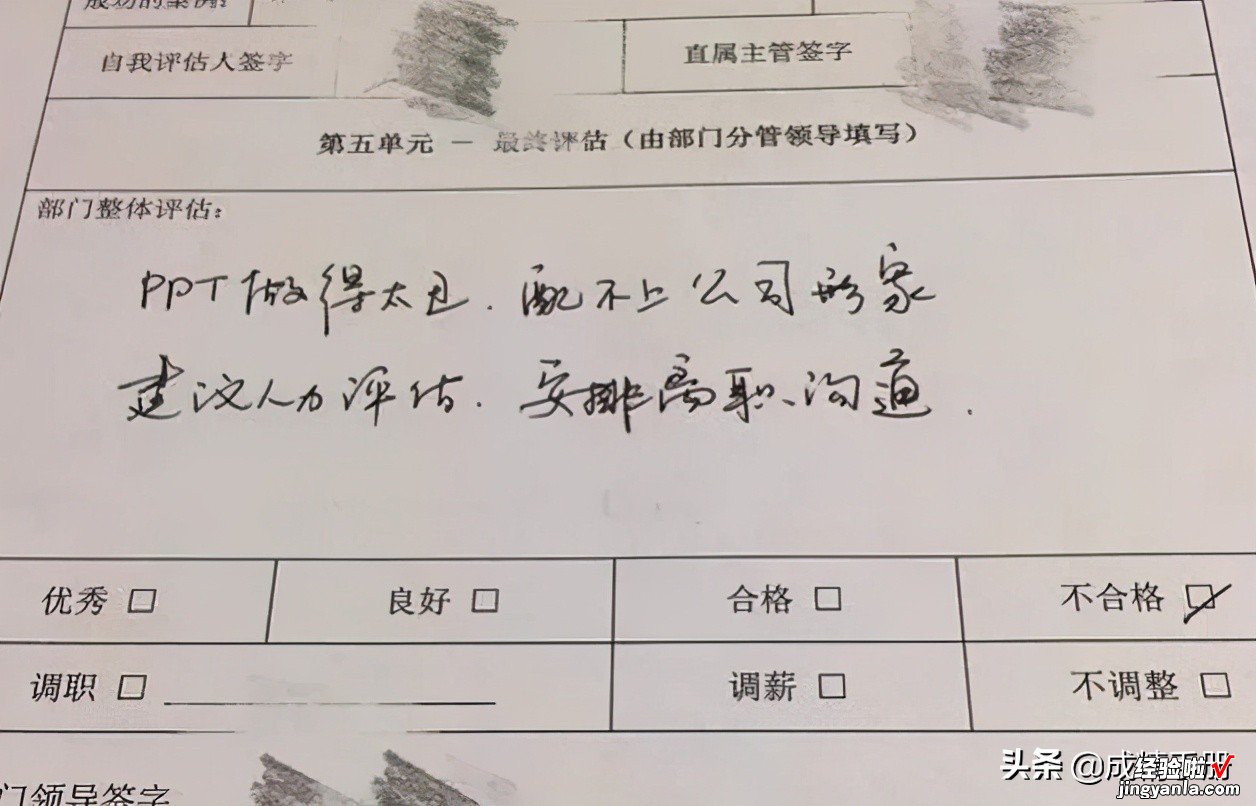 自我评估人签字 直属主管签字
第五单元 - 最终评估（由部门分管领导填写）
部门整体评估：
PPT做得太丑．配不上公司形象
建议人力评估．安排离职沟通．
优秀 □ 良好 □ 合格 □ 不合格 ☑
调职 □ 调薪 □ 不调整 □
门领导签字
头条 @成精手册
经验啦√
jingyanla.com